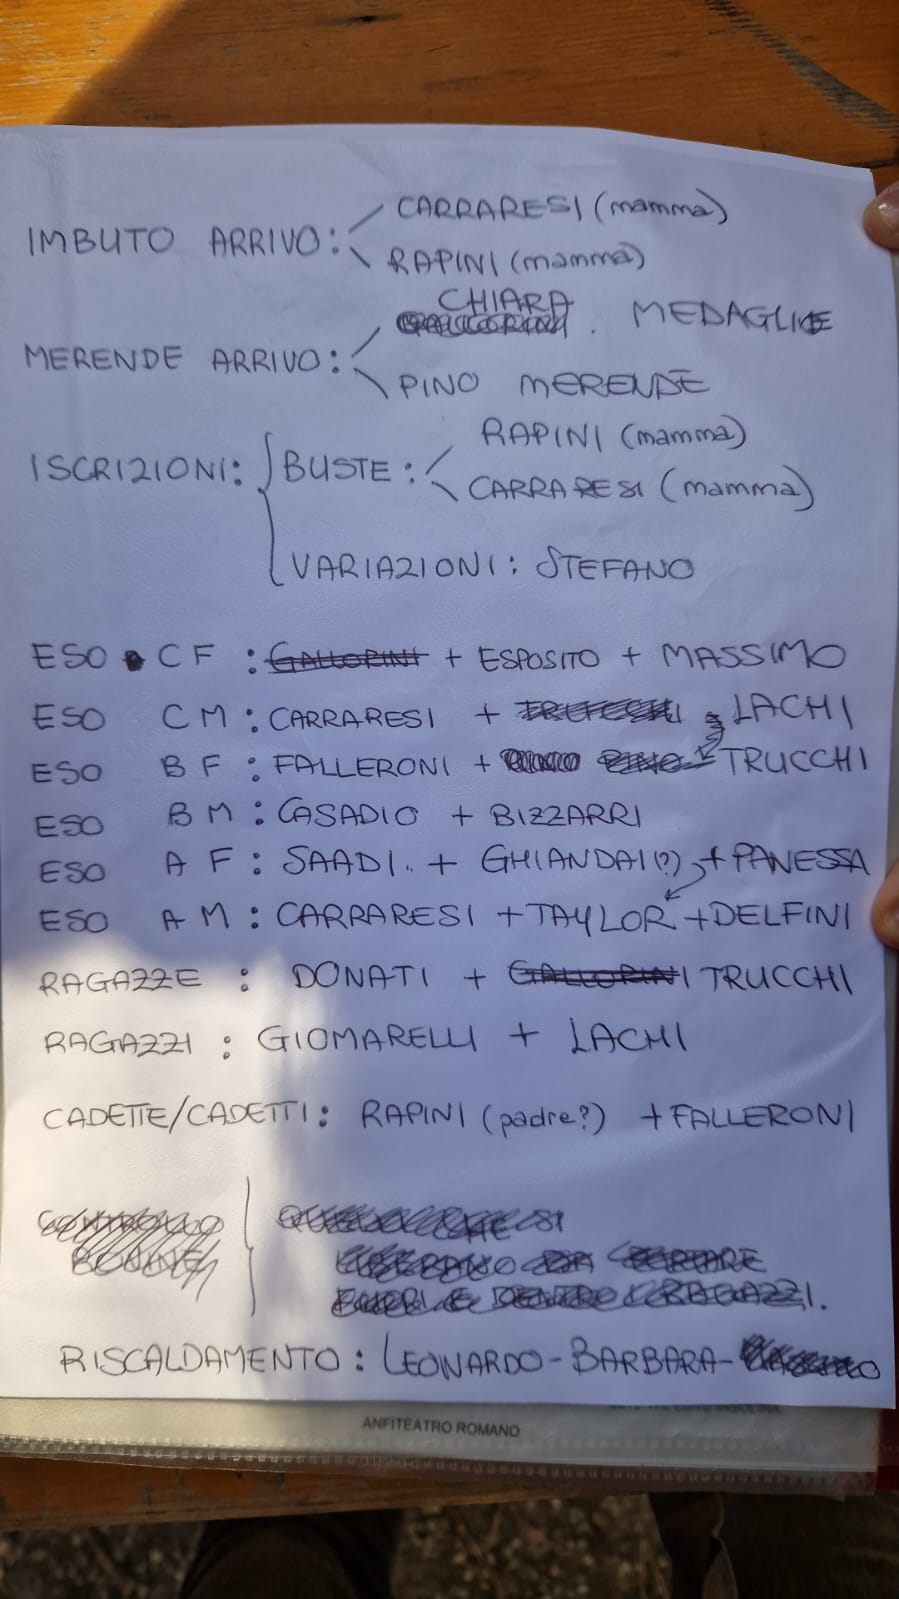 CARRARESI (mamma)
IMBUTO ARRIVO:
RAPINI (mamma)
CHIARA
MEDAGLIE
MERENDE ARRIVO:
PINO MERENDE
RAPINI (mamma)
ISCRIZIONI: BUSTE:
CARRARESI (mamma)
VARIAZIONI: STEFANO
ESO CF : GALLORINI + ESPOSITO + MASSIMO
ESO CM : CARRARESI + LACHI
ESO BF : FALLERONI + TRUCCHI
ESO BM : CASADIO + BIZZARRI
ESO AF : SAADI.. + GHIANDAI(?) + PANESSA
ESO AM : CARRARESI + TAYLOR + DELFINI
RAGAZZE : DONATI + GALLORINI TRUCCHI
RAGAZZI : GIOMARELLI + LACHI
CADETTE/CADETTI: RAPINI (padre?) + FALLERONI
RISCALDAMENTO: LEONARDO - BARBARA -
ANFITEATRO ROMANO